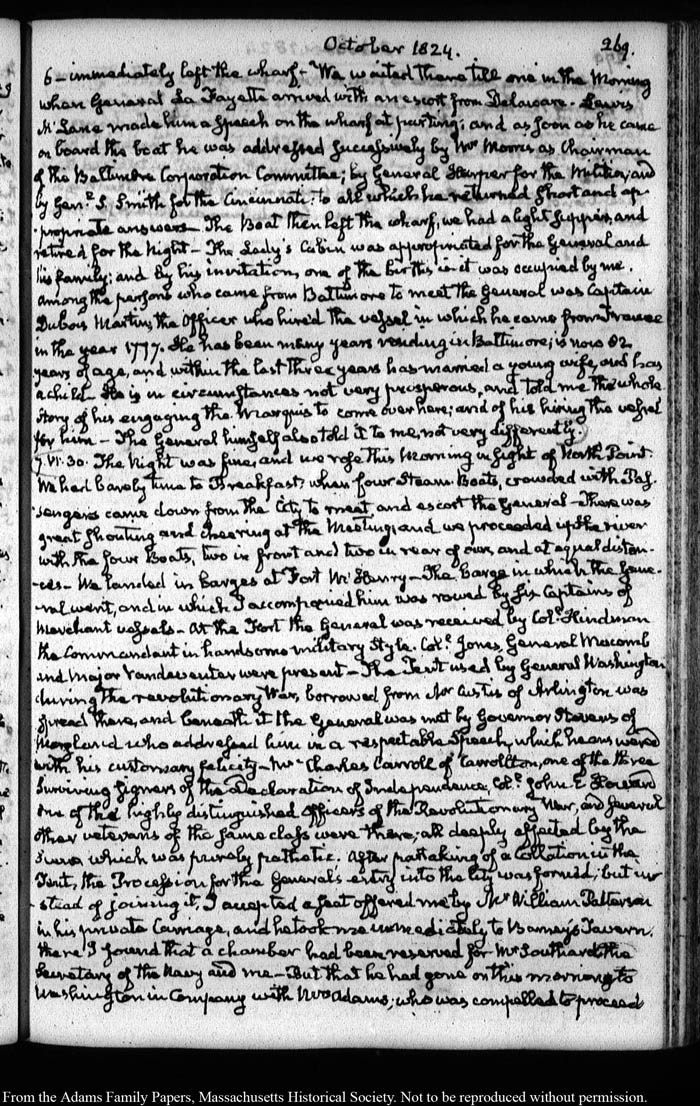 October 1824.
269.
6 – immediately left the wharf – We waited there till one in the Morning
when General La Fayette arrived with an escort from Delaware – Lewis
McLane made him a Speech on the wharf at parting; and as soon as he came
on board the boat he was addressed successively by Mr Morris as Chairman
of the Baltimore Corporation Committee; by General Harper for the Militia, and
by Genl. S. Smith for the Cincinnati: to all which he returned short and ap-
propriate answers – The Boat then left the wharf; we had a light supper, and
retired for the Night – The Lady's Cabin was appropriated for the General and
his family; and by his invitation, one of the births in it was occupied by me.
Among the persons who came from Baltimore to meet the General was Captain
Dubois Martin, the Officer who hired the vessel in which he came from France
in the year 1777. He has been many years residing in Baltimore; is now 82
years of age, and within the last three years has married a young wife, and has
a child – He is in circumstances not very prosperous, and told me the whole
story of his engaging the Marquis to come over here; and of his hiring the vessel
for him – The General himself also told it to me, not very differently.
7. VI. 30. The Night was fine, and we rose this Morning in sight of North Point.
We had barely time to Breakfast, when four Steam Boats, crowded with Pas-
sengers came down from the City to meet, and escort the General – There was
great shouting and cheering at the Meeting, and we proceeded up the river
with the four Boats, two in front and two in rear of our, and at equal distan-
ces – We landed in Barges at Fort McHenry – The Barge in which the Gene-
ral went, and in which I accompanied him was rowed by six Captains of
Merchant vessels – At the Fort the General was received by Coll. Hindman
the Commandant in handsome military Style. Coll. Jones, General Macomb
and Major Vandeventer were present – The Tent used by General Washington
during the revolutionary War, borrowed from Mr Custis of Arlington was
spread there, and beneath it the General was met by Governor Stevens of
Maryland who addressed him in a respectable Speech, which he answered
with his customary felicity – Mr Charles Carroll of Carrollton, one of the three
surviving signers of the Declaration of Independence, Coll. John E. Howard
one of the highly distinguished Officers of the Revolutionary War, and several
other veterans of the same class were there; all deeply affected by the
scene which was purely pathetic. After partaking of a Collation in the
Tent, the Procession for the General's entry into the City was formed; but in-
stead of joining it, I accepted a seat offered me by Mr William Patterson
in his private Carriage, and he took me immediately to Barney's Tavern.
There I found that a chamber had been reserved for Mr Southard the
Secretary of the Navy and me – But that he had gone on this morning to
Washington in Company with Mrs Adams; who was compelled to proceed
From the Adams Family Papers, Massachusetts Historical Society. Not to be reproduced without permission.